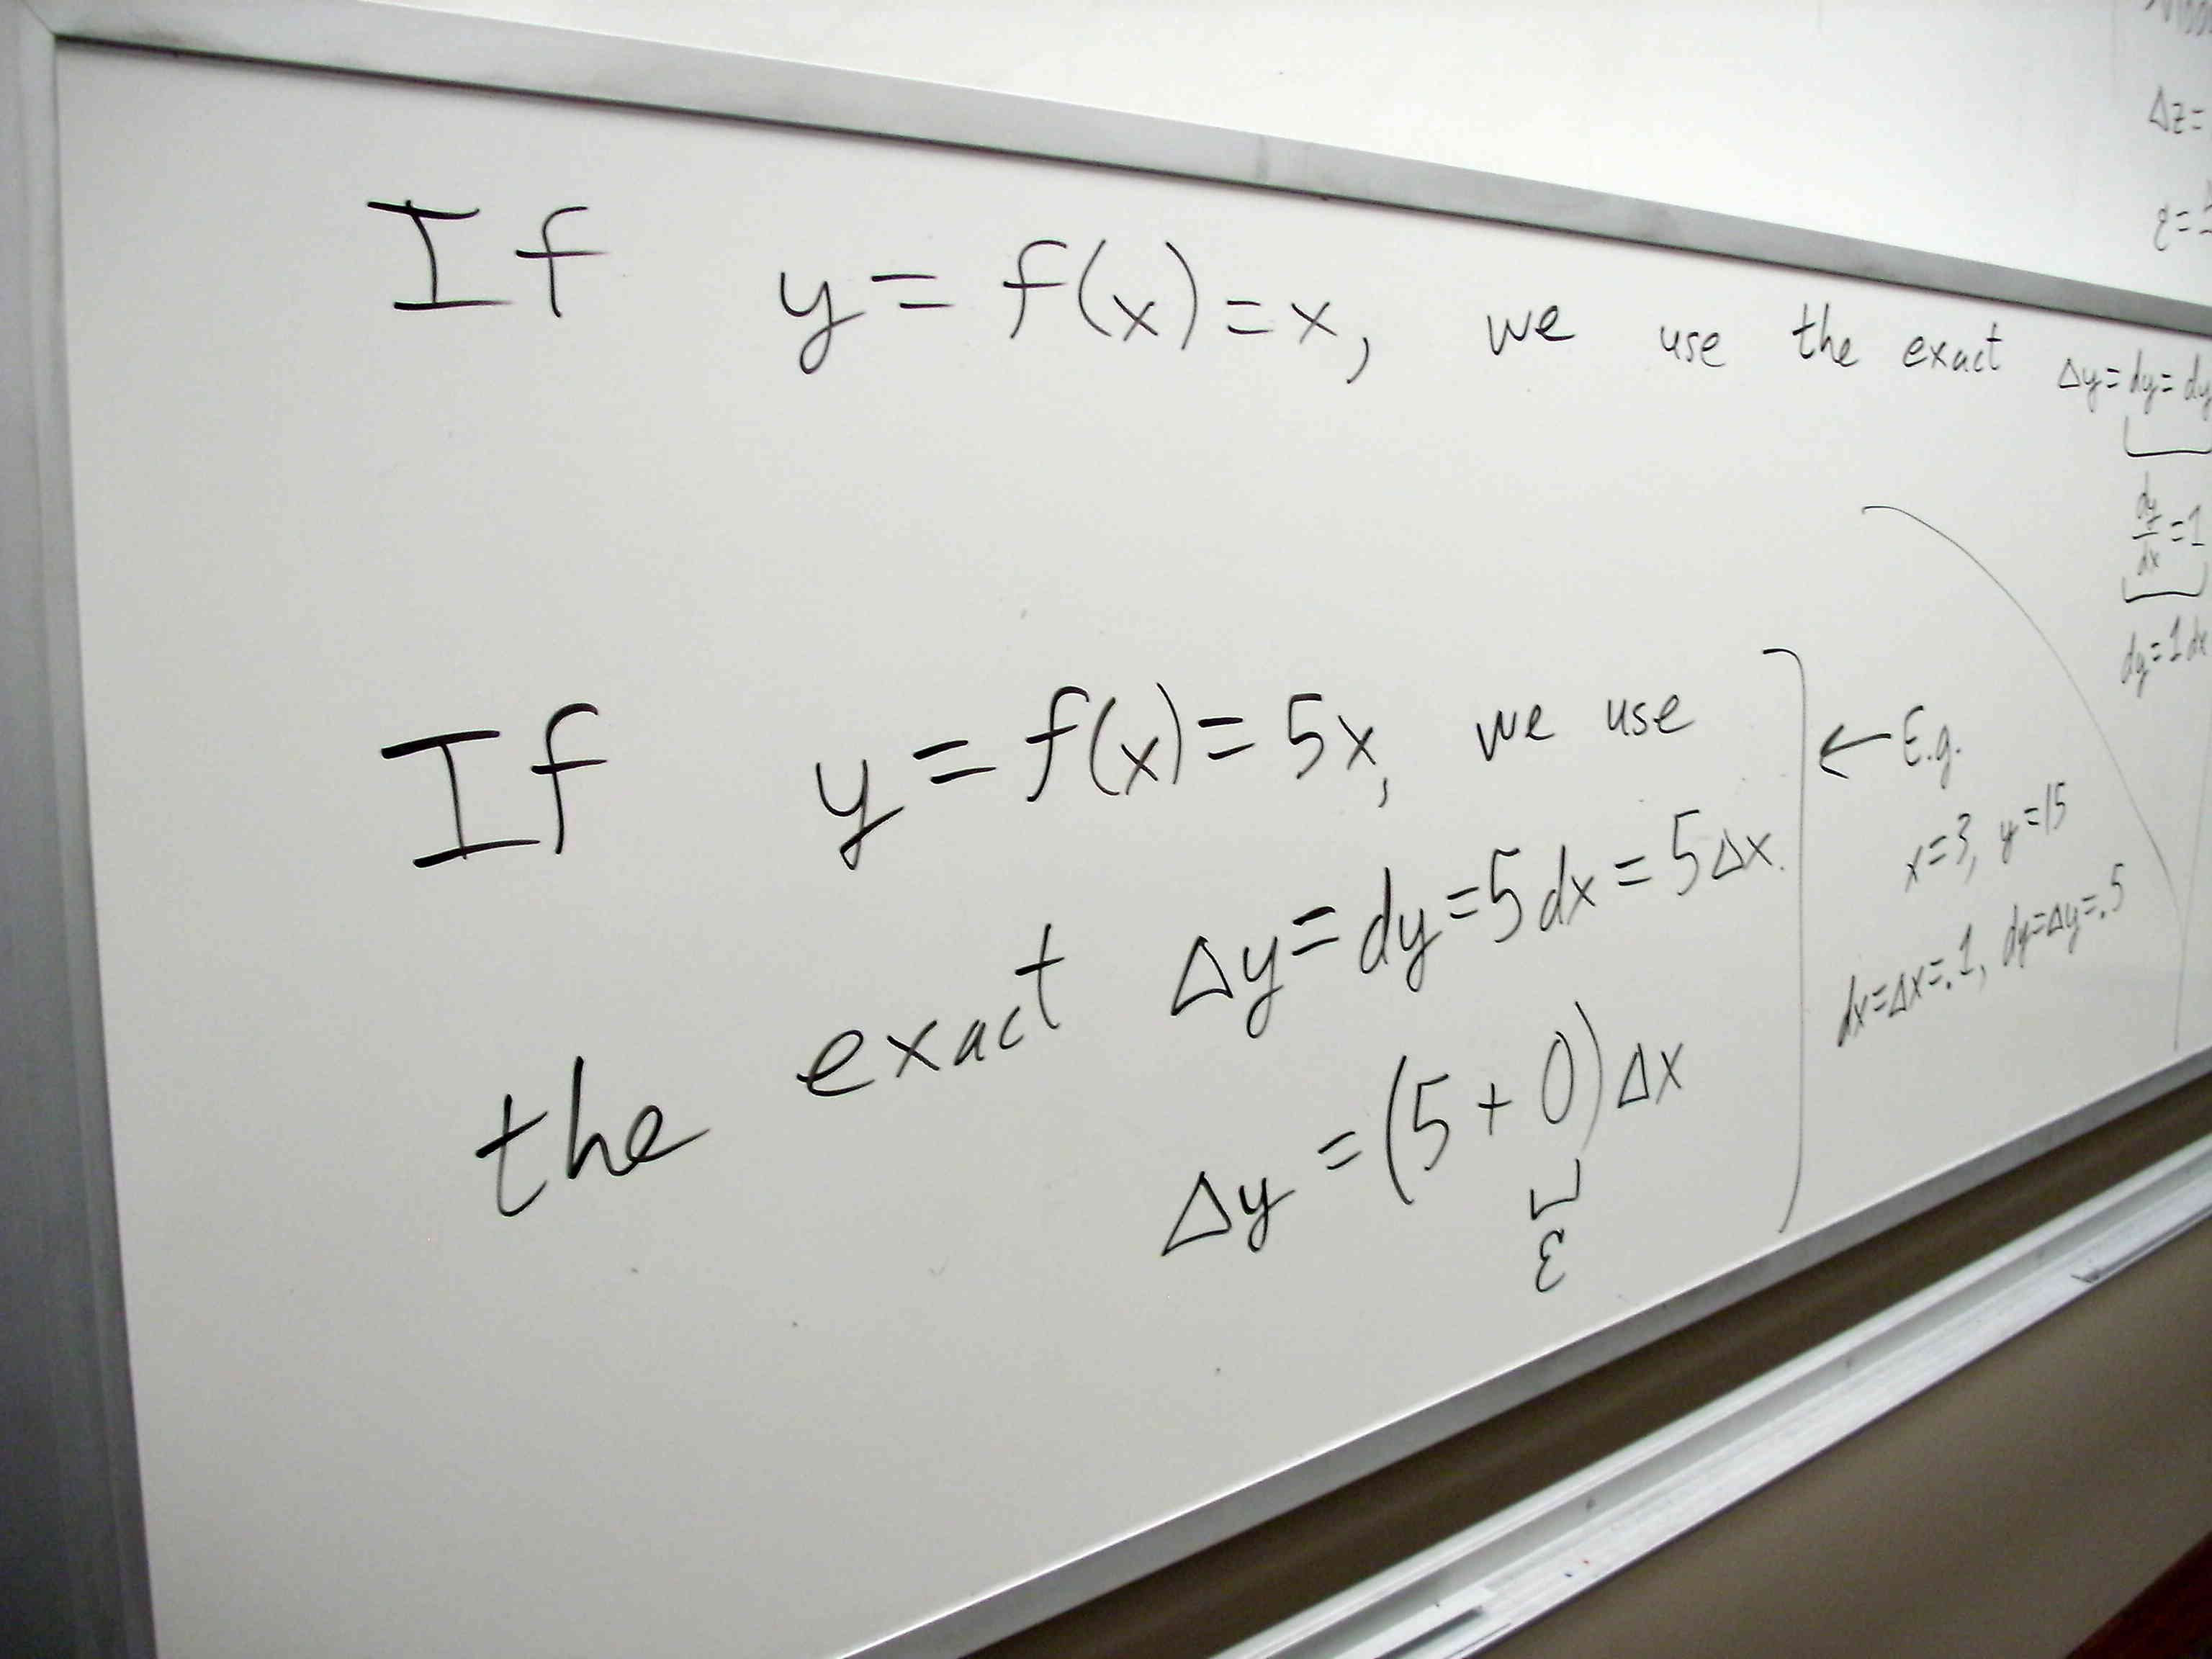 Δz=
ε=
If y = f(x) = x, we use the exact Δy = dy = dy
dy/dx = 1
dy = 1 dx
If y = f(x) = 5x, we use
the exact Δy = dy = 5 dx = 5 Δx.
Δy = (5 + 0) Δx
ε
← E.g.
x = 3, y = 15
dx = Δx = .1, dy = Δy = .5